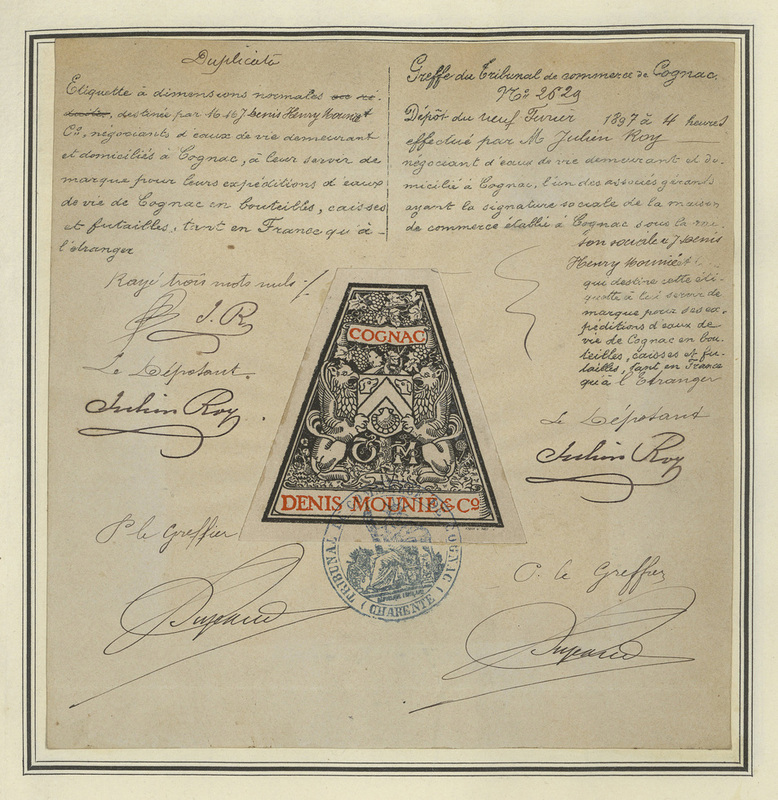 Duplicata
Etiquette à dimensions normales
destinée par M. M. J. Denis Henry Mounié et
Cº, négociants d'eaux de vie demeurant
et domiciliés à Cognac, à leur servir de
marque pour leurs expéditions d'eaux
de vie de Cognac en bouteilles, caisses
et futailles, tant en France qu'à
l'étranger
Rayé trois mots nuls
J. R
Le Déposant
Julien Roy
P. le Greffier
Greffe du Tribunal de commerce de Cognac.
Nº 2629
Dépôt du neuf Février 1897 à 4 heures
effectué par M Julien Roy
négociant d'eaux de vie demeurant et do-
micilié à Cognac, l'un des associés gérants
ayant la signature sociale de la maison
de commerce établie à Cognac sous la rai-
son sociale J. Denis
Henry Mounié &
que destine cette éti-
quette à lui servir de
marque pour ses ex-
péditions d'eaux de
vie de Cognac en bou-
teilles, caisses et fu-
tailles, tant en France
qu'à l'Etranger
Le Déposant
Julien Roy
P. le Greffier
COGNAC
D M
DENIS MOUNIÉ & Cº
TRIBUNAL COGNAC
(CHARENTE)